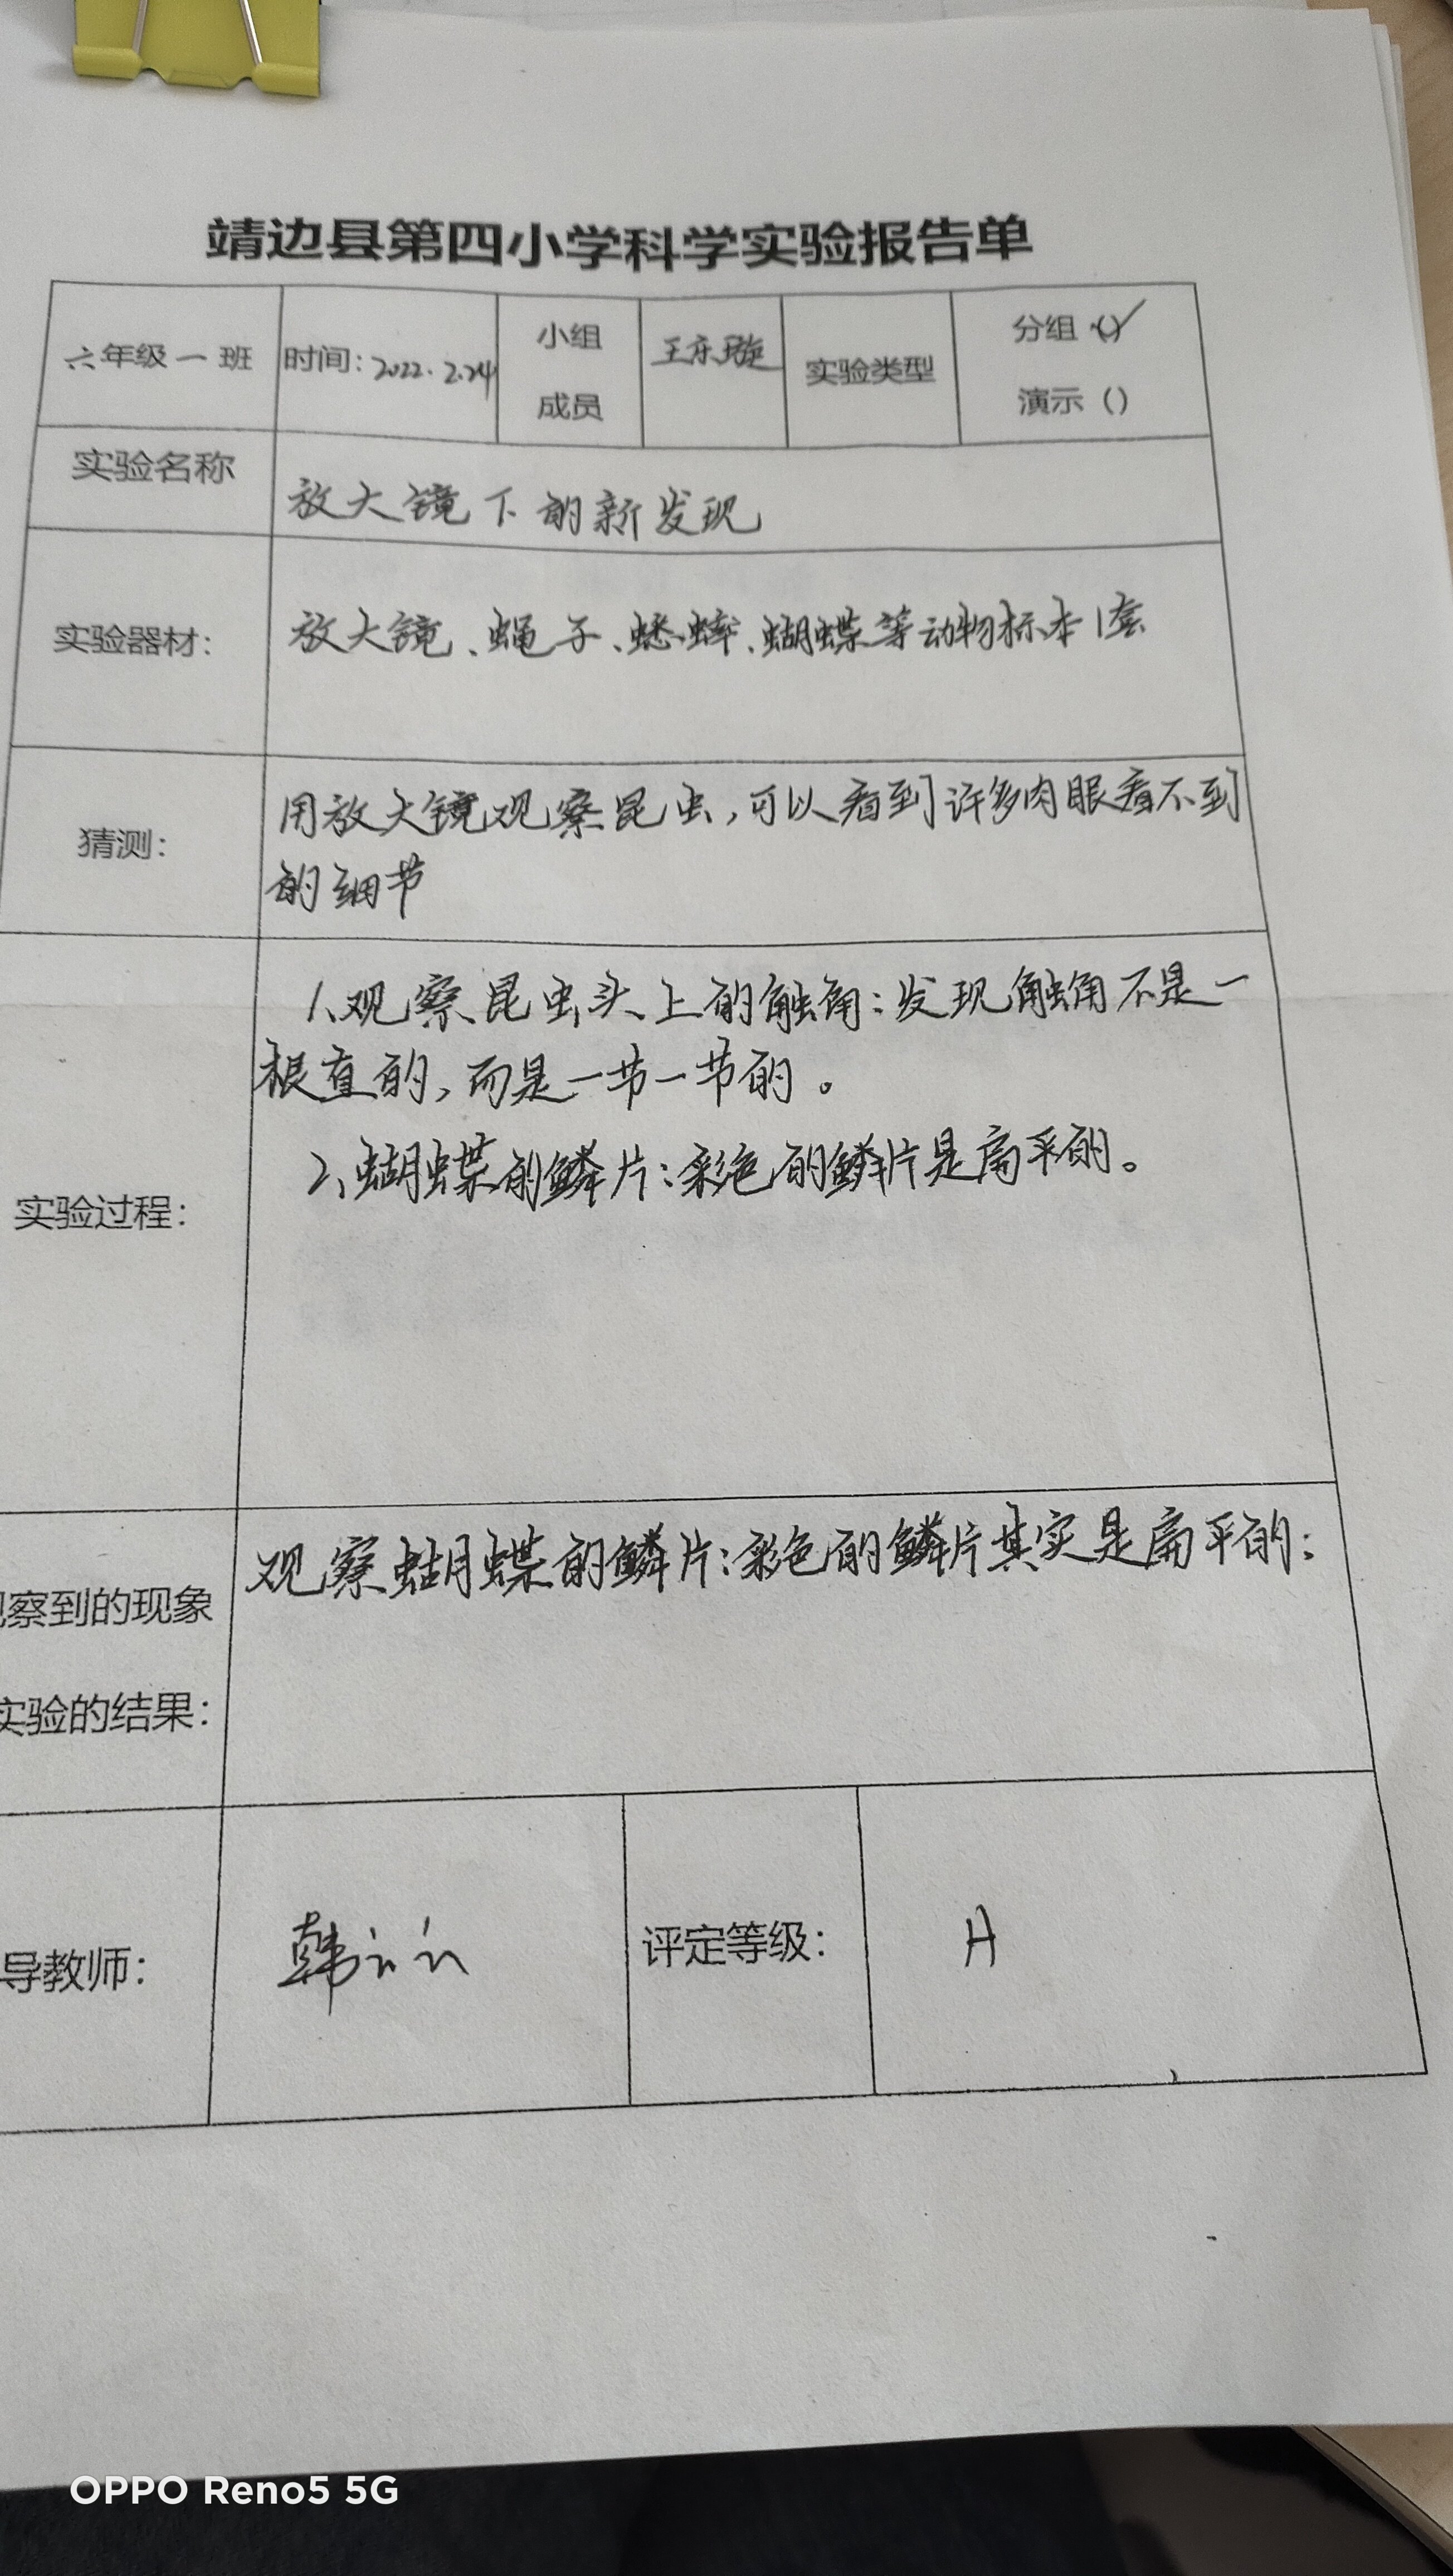 靖边县第四小学科学实验报告单
六年级一班 时间：2022.2.24 小组成员 王乐璇 实验类型 分组（）✓ 演示（）
实验名称 放大镜下的新发现
实验器材： 放大镜、蝇子、蟋蟀、蝴蝶等动物标本1套
猜测： 用放大镜观察昆虫，可以看到许多肉眼看不到
的细节
1、观察昆虫头上的触角：发现触角不是一
根直的，而是一节一节的。
2、蝴蝶的鳞片：彩色的鳞片是扁平的。
实验过程：
观察蝴蝶的鳞片：彩色的鳞片其实是扁平的；
察到的现象
实验的结果：
导教师： 韩 评定等级： A
OPPO Reno5 5G